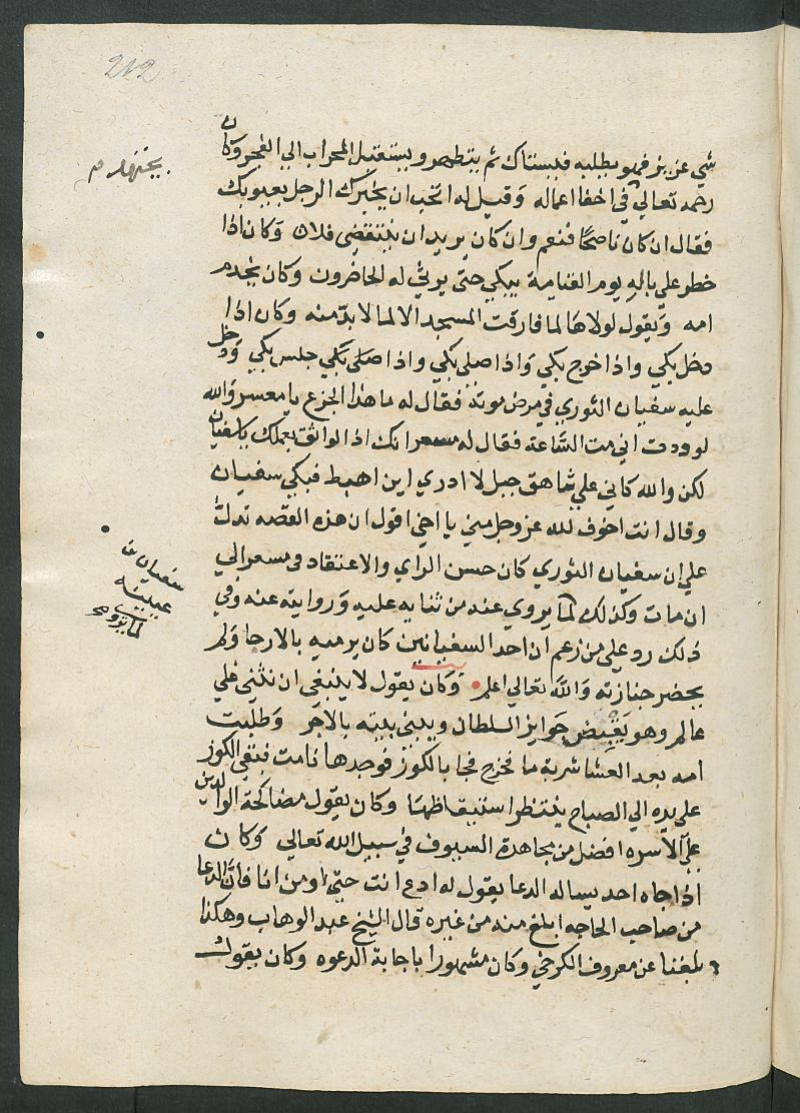 212
يجتهد م
شي عزيز فهو يطلبه فيستاك ثم يتطهر ويستقبل المحراب الي الفجر وكان
رحمه تعالي في اخفا اعماله وقيل له اتحب ان يخبرك الرجل بعيوبك
فقال ان كان ناصحا فنعم وان كان يريد ان ينتقضي فلا وكان اذا
خطر علي باله يوم القيامة يبكي حتي يرثي له الحاضرون وكان يخدم
امه ويقول لولاها لما فارقت المسجد الا لما لا بد منه وكان اذا
دخل بكي واذا خرج بكي واذا صلي بكي واذا صلي بكي جلس بكي ودخل
عليه سفيان الثوري في مرض موته فقال له ما هذا الجزع يا مسعر والله
لوددت اني مت الساعة فقال له مسعر انك اذا لواثق بعملك يا سفيان
لكن والله كاني علي شاهق جبل لا ادري اين اهبط فبكي سفيان
وقال انت اخوف لله عز وجل مني يا اخي اقول ان هذه القصه تدل
علي ان سفيان الثوري كان حسن الراي والاعتقاد في مسعر الي
سفيان بن
عيينه
ان مات وكذلك لما يروي عنه من ثنايه عليه وروايته عنه وفي
ذلك رد علي من زعم ان احد السفيانين كان يرميه بالارجا ولم
يحضر جنازته والله تعالي اعلم وكان يقول لا ينبغي ان نثني علي
عالم وهو يقبض جوايز السلطان ويبني بيته بالاجر وطلبت
امه بعد العشا شربة ما فخرج فجا بالكوز فوجدها نامت فبقي الكوز
علي يده الي الصباح ينتظر استيقاظها وكان يقول مضاكحة الوالدين
علي الاسره افضل من مجاهدة السيوف في سبيل الله تعالي وكان
اذا جاه احد يساله الدعا يقول له ادع انت حتي اومن انا فان الدعا
من صاحب الحاجه ابلغ منه من غيره قال الشيخ عبد الوهاب وهكذا
بلغنا عن معروف الكرخي وكان مشهورا باجابة الدعوه وكان يقول